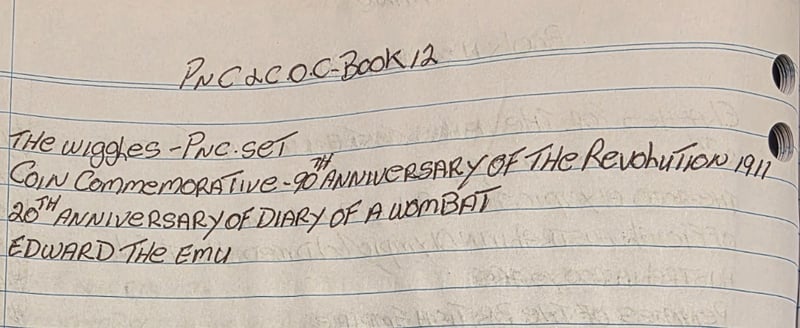 PNC & C.O.C-BOOK 12
THE WIGGLES - PNC. SET
COIN COMMEMORATIVE - 90TH ANNIVERSARY OF THE REVOLUTION 1911
20TH ANNIVERSARY OF DIARY OF A WOMBAT
EDWARD THE EMU